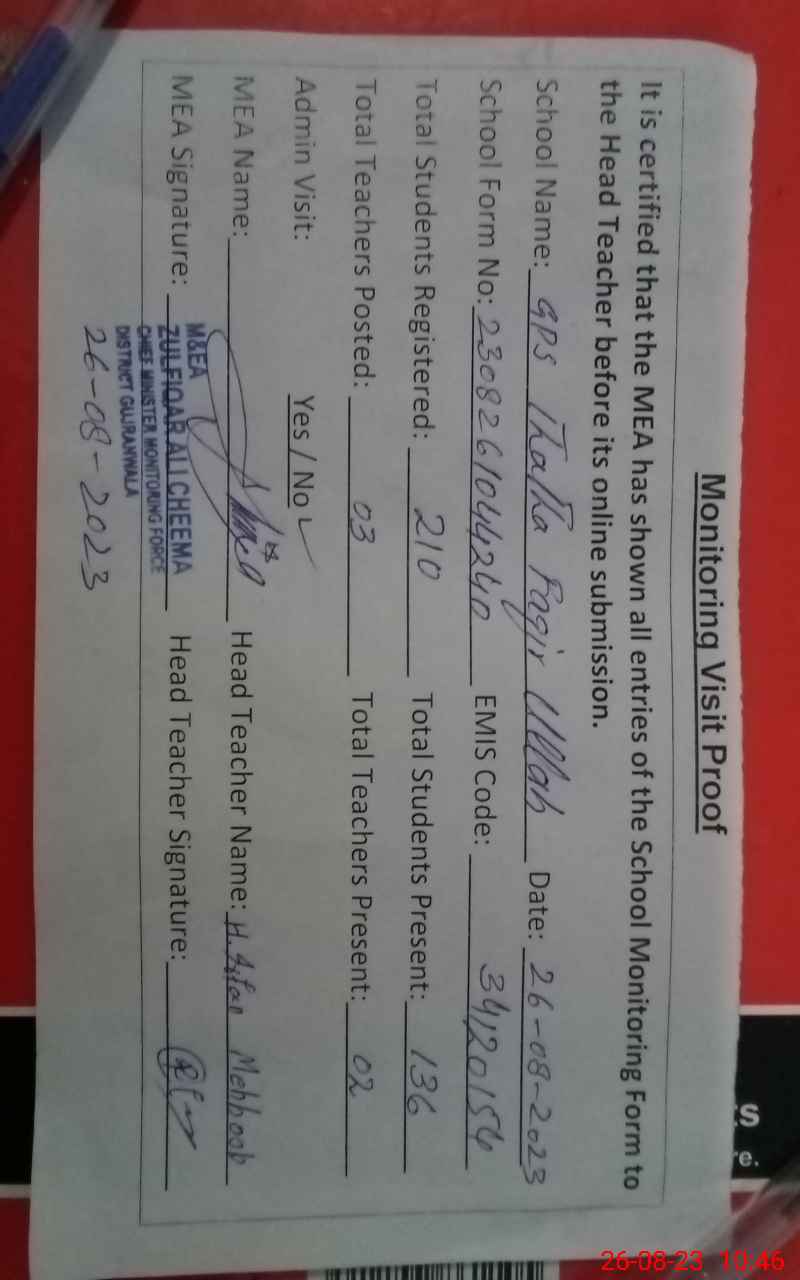 Monitoring Visit Proof
It is certified that the MEA has shown all entries of the School Monitoring Form to
the Head Teacher before its online submission.
School Name: GPS Thatha Faqir Ullah Date: 26-08-2023
School Form No: 230826104424D EMIS Code: 34120154
Total Students Registered: 210 Total Students Present: 136
Total Teachers Posted: 03 Total Teachers Present: 02
Admin Visit: Yes / No ✓
MEA Name: Head Teacher Name: Mehboob
MEA Signature: Head Teacher Signature:
M&EA
ZULFIQAR ALI CHEEMA
CHIEF MINISTER MONITORING FORCE
DISTRICT GUJRANWALA
26-08-2023
26-08-23 10:46